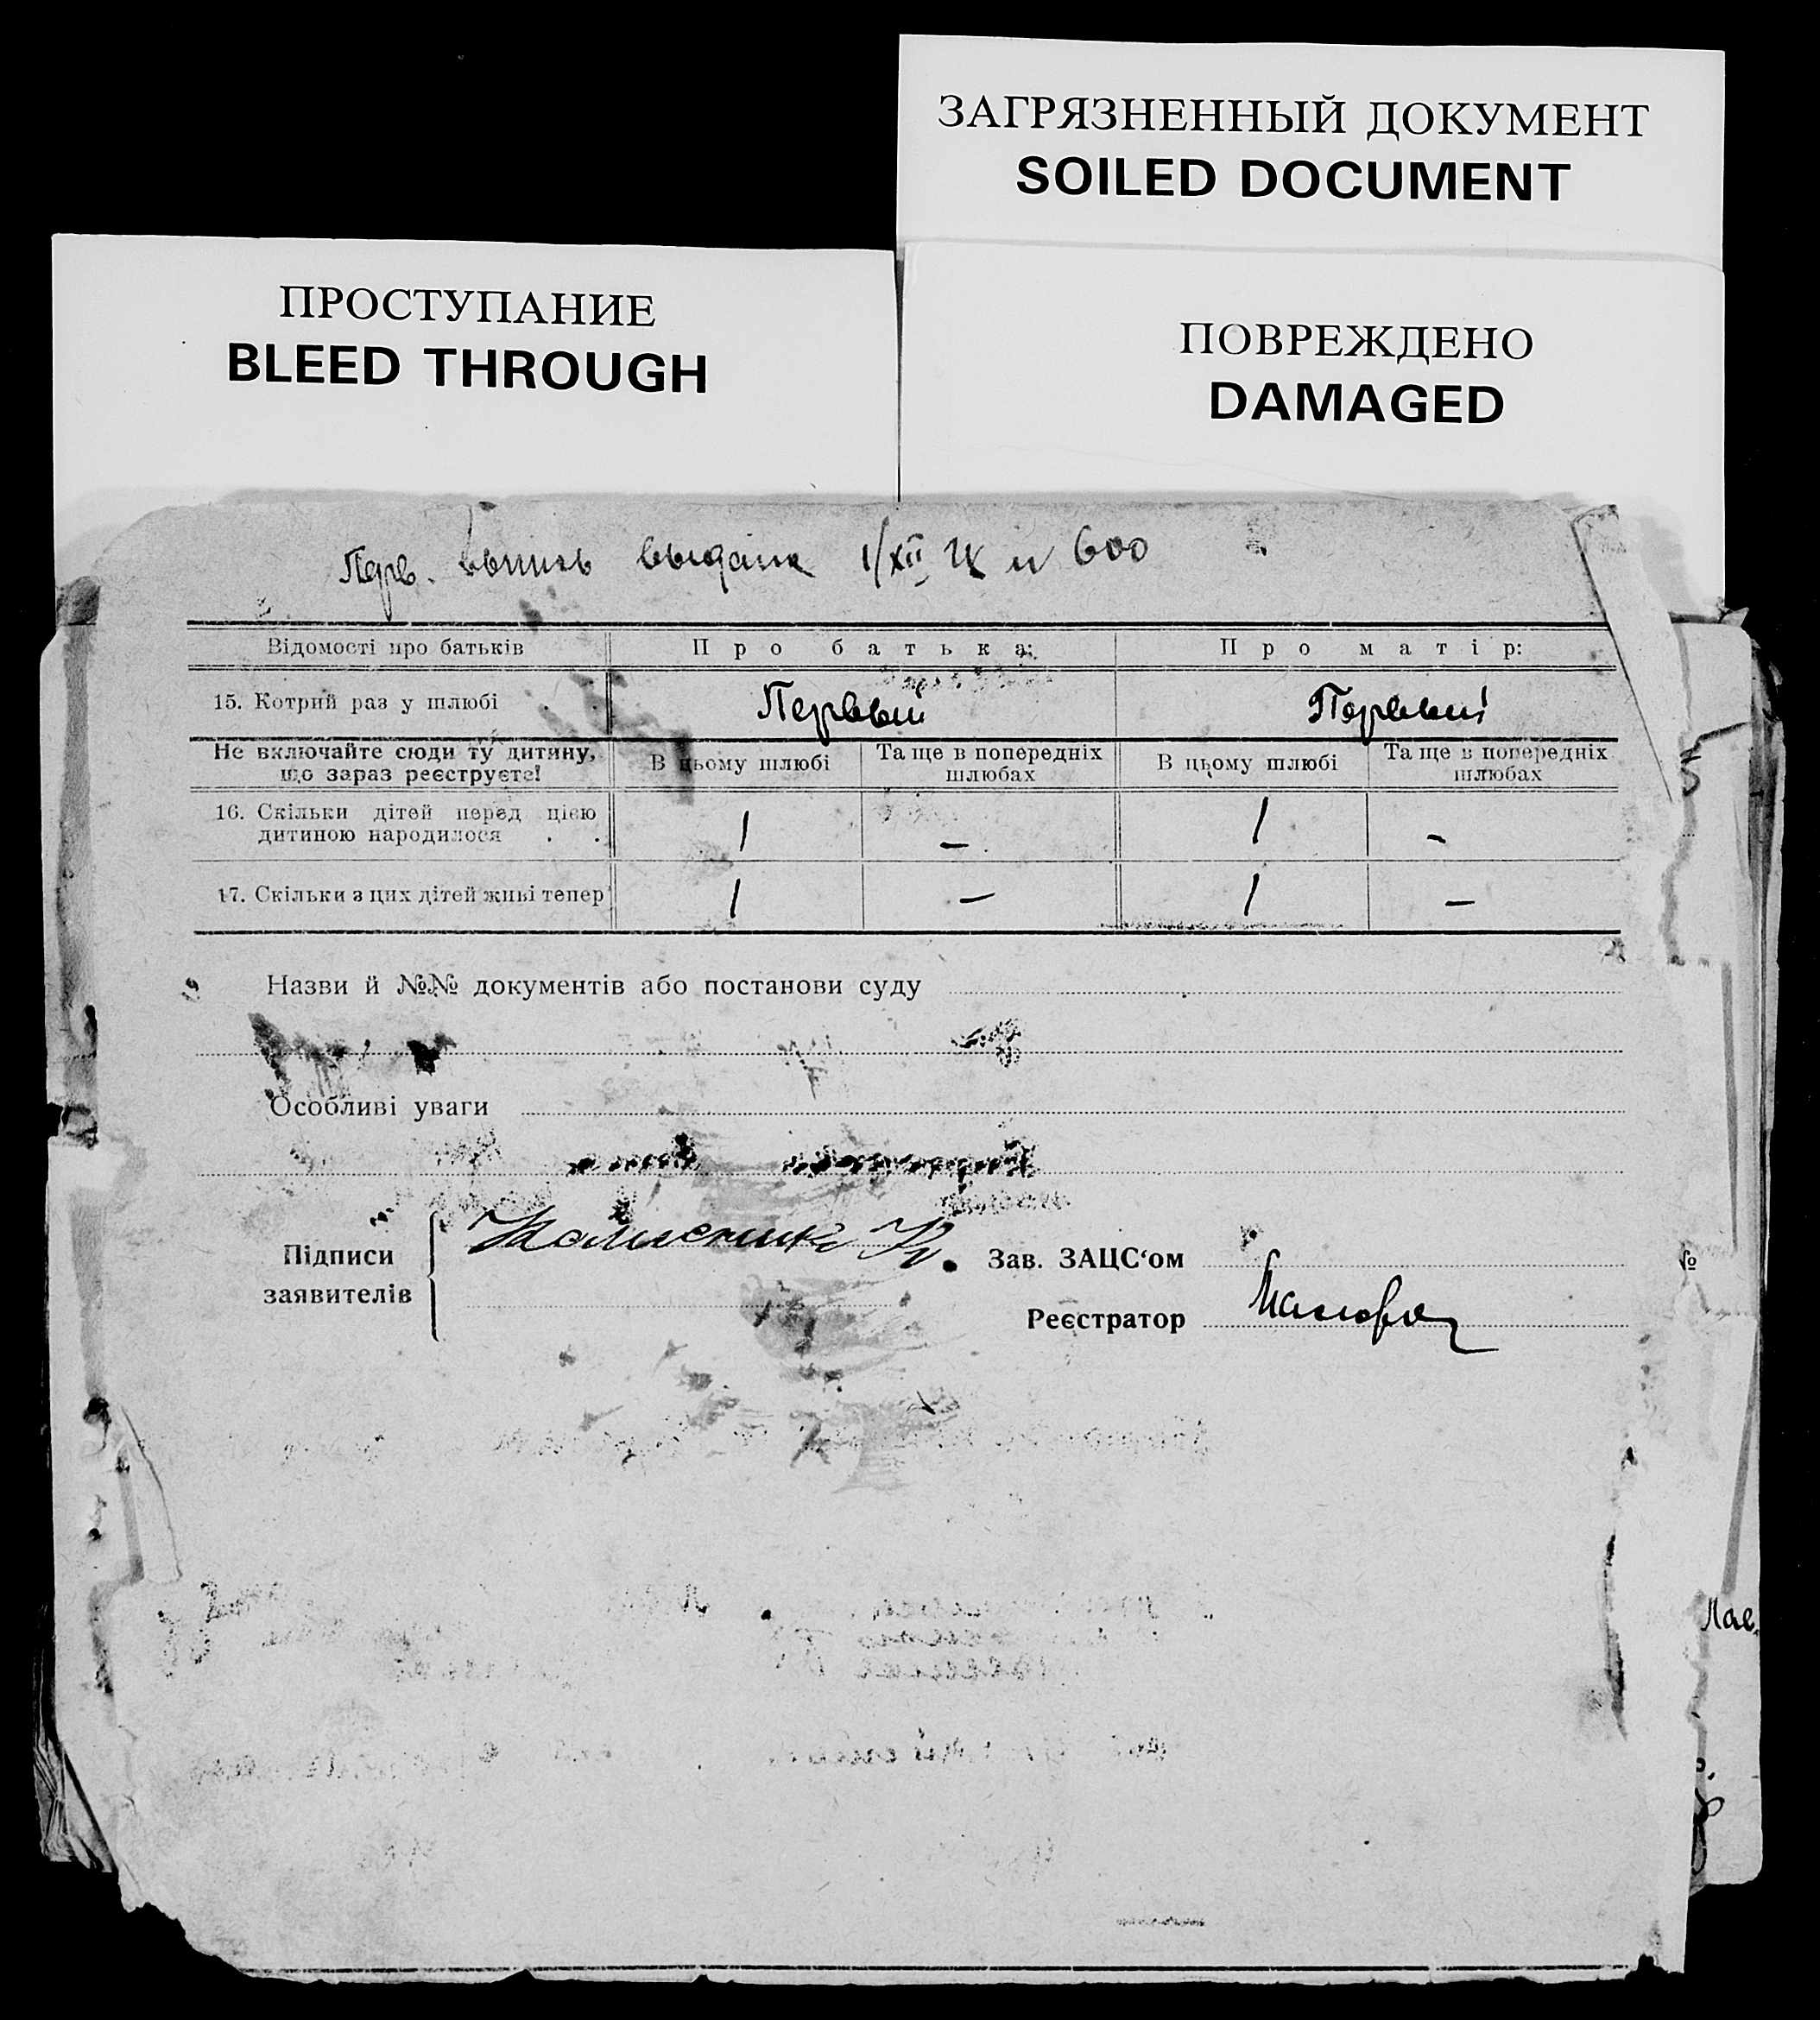 ЗАГРЯЗНЕННЫЙ ДОКУМЕНТ
SOILED DOCUMENT
ПРОСТУПАНИЕ
BLEED THROUGH
ПОВРЕЖДЕНО
DAMAGED
Перв. выпись выдана 1/XII № 600
Відомості про батьків Про батька: Про матір:
15. Котрий раз у шлюбі . . Первый Первый
Не включайте сюди ту дитину, що зараз реєструєте! В цьому шлюбі Та ще в попередніх шлюбах В цьому шлюбі Та ще в попередніх шлюбах
16. Скільки дітей перед цією дитиною народилося . . 1 – 1 –
17. Скільки з цих дітей живі тепер 1 – 1 –
Назви й №№ документів або постанови суду
Особливі уваги
Підписи заявителів
Зав. ЗАЦС‘ом
№
Реєстратор
Лав.